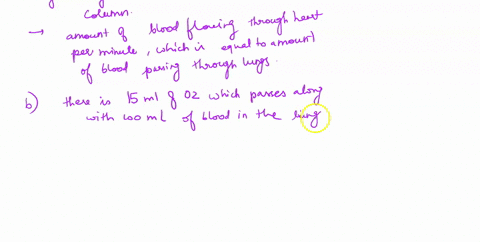 column.
→ amount of blood flowing through heart
per minute, which is equal to amount
of blood passing through lungs.
b) there is 15 ml of O2 which passes along
with 100 mL of blood in the lung